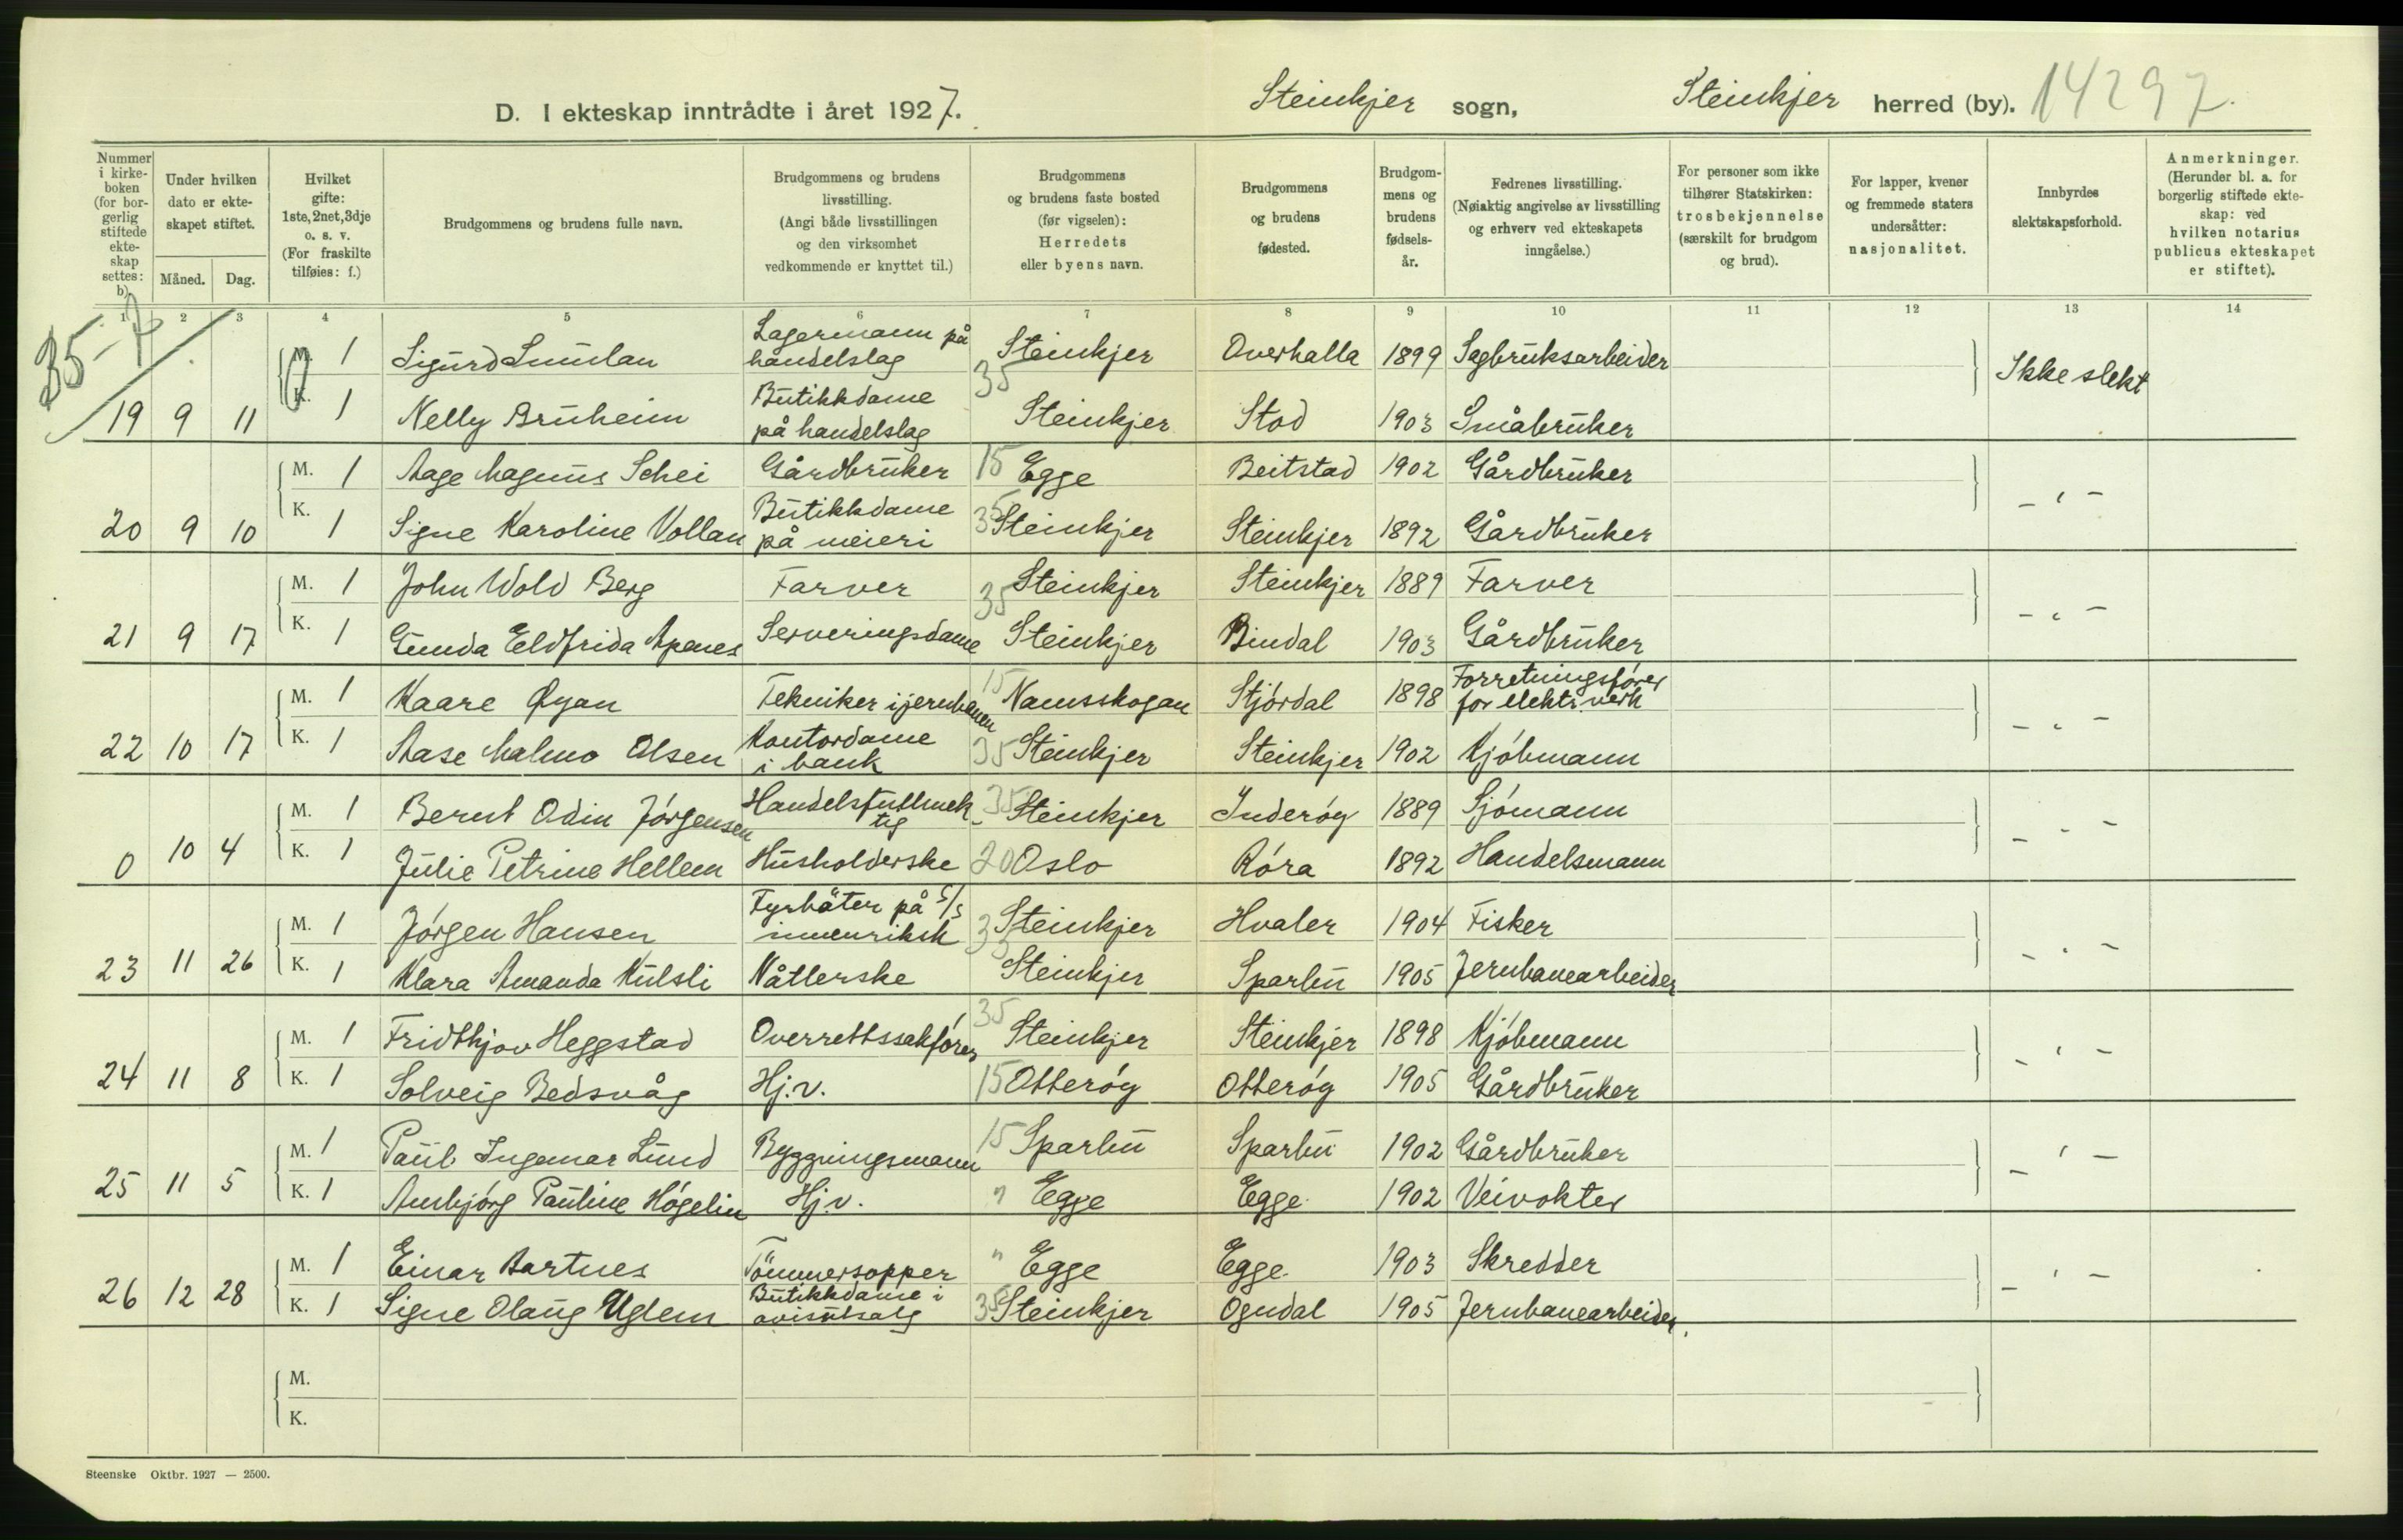 D. I ekteskap inntrådte i året 1927. Steinkjer sogn, Steinkjer herred (by). 14297.
Nummer i kirke-boken (for bor-gerlig stiftede ekte-skap settes: b).
Under hvilken dato er ekte-skapet stiftet.
Måned. Dag.
Hvilket gifte: 1ste, 2net, 3dje o. s. v. (For fraskilte tilføies: f.)
Brudgommens og brudens fulle navn.
Brudgommens og brudens livsstilling. (Angi både livsstillingen og den virksomhet vedkommende er knyttet til.)
Brudgommens og brudens faste bosted (før vigselen): Herredets eller byens navn.
Brudgommens og brudens fødested.
Brudgom-mens og brudens fødsels-år.
Fedrenes livsstilling. (Nøiaktig angivelse av livsstilling og erhverv ved ekteskapets inngåelse.)
For personer som ikke tilhører Statskirken: trosbekjennelse (særskilt for brudgom og brud).
For lapper, kvener og fremmede staters undersåtter: nasjonalitet.
Innbyrdes slektskapsforhold.
Anmerkninger. (Herunder bl. a. for borgerlig stiftede ekte-skap: ved hvilken notarius publicus ekteskapet er stiftet).
1 2 3 4 5 6 7 8 9 10 11 12 13 14
35-7
M. 1 Sigurd Smulan Lagermann på handelslag Steinkjer Overhalla 1899 Sagbruksarbeider Ikke slekt
35
19 9 11 K. 1 Nelly Bruheim Butikkdame på handelslag Steinkjer Stod 1903 Småbruker
M. 1 Aage Magnus Schei Gårdbruker 15 Egge Beitstad 1902 Gårdbruker - " -
20 9 10 K. 1 Signe Karoline Vollan Butikkdame på meieri 35 Steinkjer Steinkjer 1892 Gårdbruker
M. 1 John Wold Berg Farver 35 Steinkjer Steinkjer 1889 Farver - " -
21 9 17 K. 1 Gunda Eldfrida Apenes Serveringsdame Steinkjer Bindal 1903 Gårdbruker
M. 1 Kaare Øyan Tekniker i jernbanen 15 Namsskogan Stjórdal 1898 Forretningsfórer for elektr. verk - " -
22 10 17 K. 1 Aase Malmo Olsen Kontordame i bank 35 Steinkjer Steinkjer 1902 Kjóbmann
M. 1 Bernt Odin Jórgensen Handelsfullmektig 35 Steinkjer Inderóy 1889 Sjómann - " -
0 10 4 K. 1 Julie Petrine Hellem Husholderske 20 Oslo Róra 1892 Handelsmann
M. 1 Jórgen Hansen Fyrböter på S/S innenriksk 35 Steinkjer Hvaler 1904 Fisker - " -
23 11 26 K. 1 Klara Amanda Kulsli Nåtlerske Steinkjer Sparbu 1905 Jernbanearbeider
M. 1 Fridthjov Heggstad Overrettssakfórer 35 Steinkjer Steinkjer 1898 Kjóbmann - " -
24 11 8 K. 1 Solveig Bedsvåg Hj.v. 15 Otteróy Otteróy 1905 Gårdbruker
M. 1 Paul Ingemar Lund Byggningsmann 15 Sparbu Sparbu 1902 Gårdbruker - " -
25 11 5 K. 1 Ansbjórg Pauline Hógelin Hj.v. " Egge Egge 1902 Veivokter
M. 1 Einar Bartnes Tömmersopper " Egge Egge 1903 Skredder - " -
26 12 28 K. 1 Signe Olaug Uglem Butikkdame i avisutsalg 35 Steinkjer Ogndal 1905 Jernbanearbeider.
M.
K.
Steenske Oktbr. 1927 — 2500.